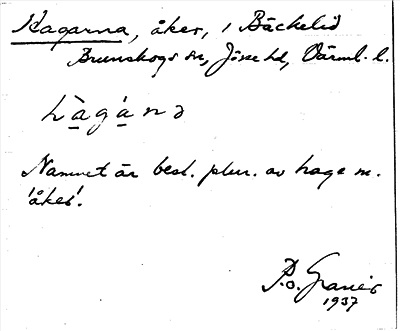 Hagarna, åker, i Bäckelid
Brunskogs sn, Jösse hd, Värml. l.
hàgánə
Namnet är best. plur. av hage m.
'åker'.
P.o. Granér
1937